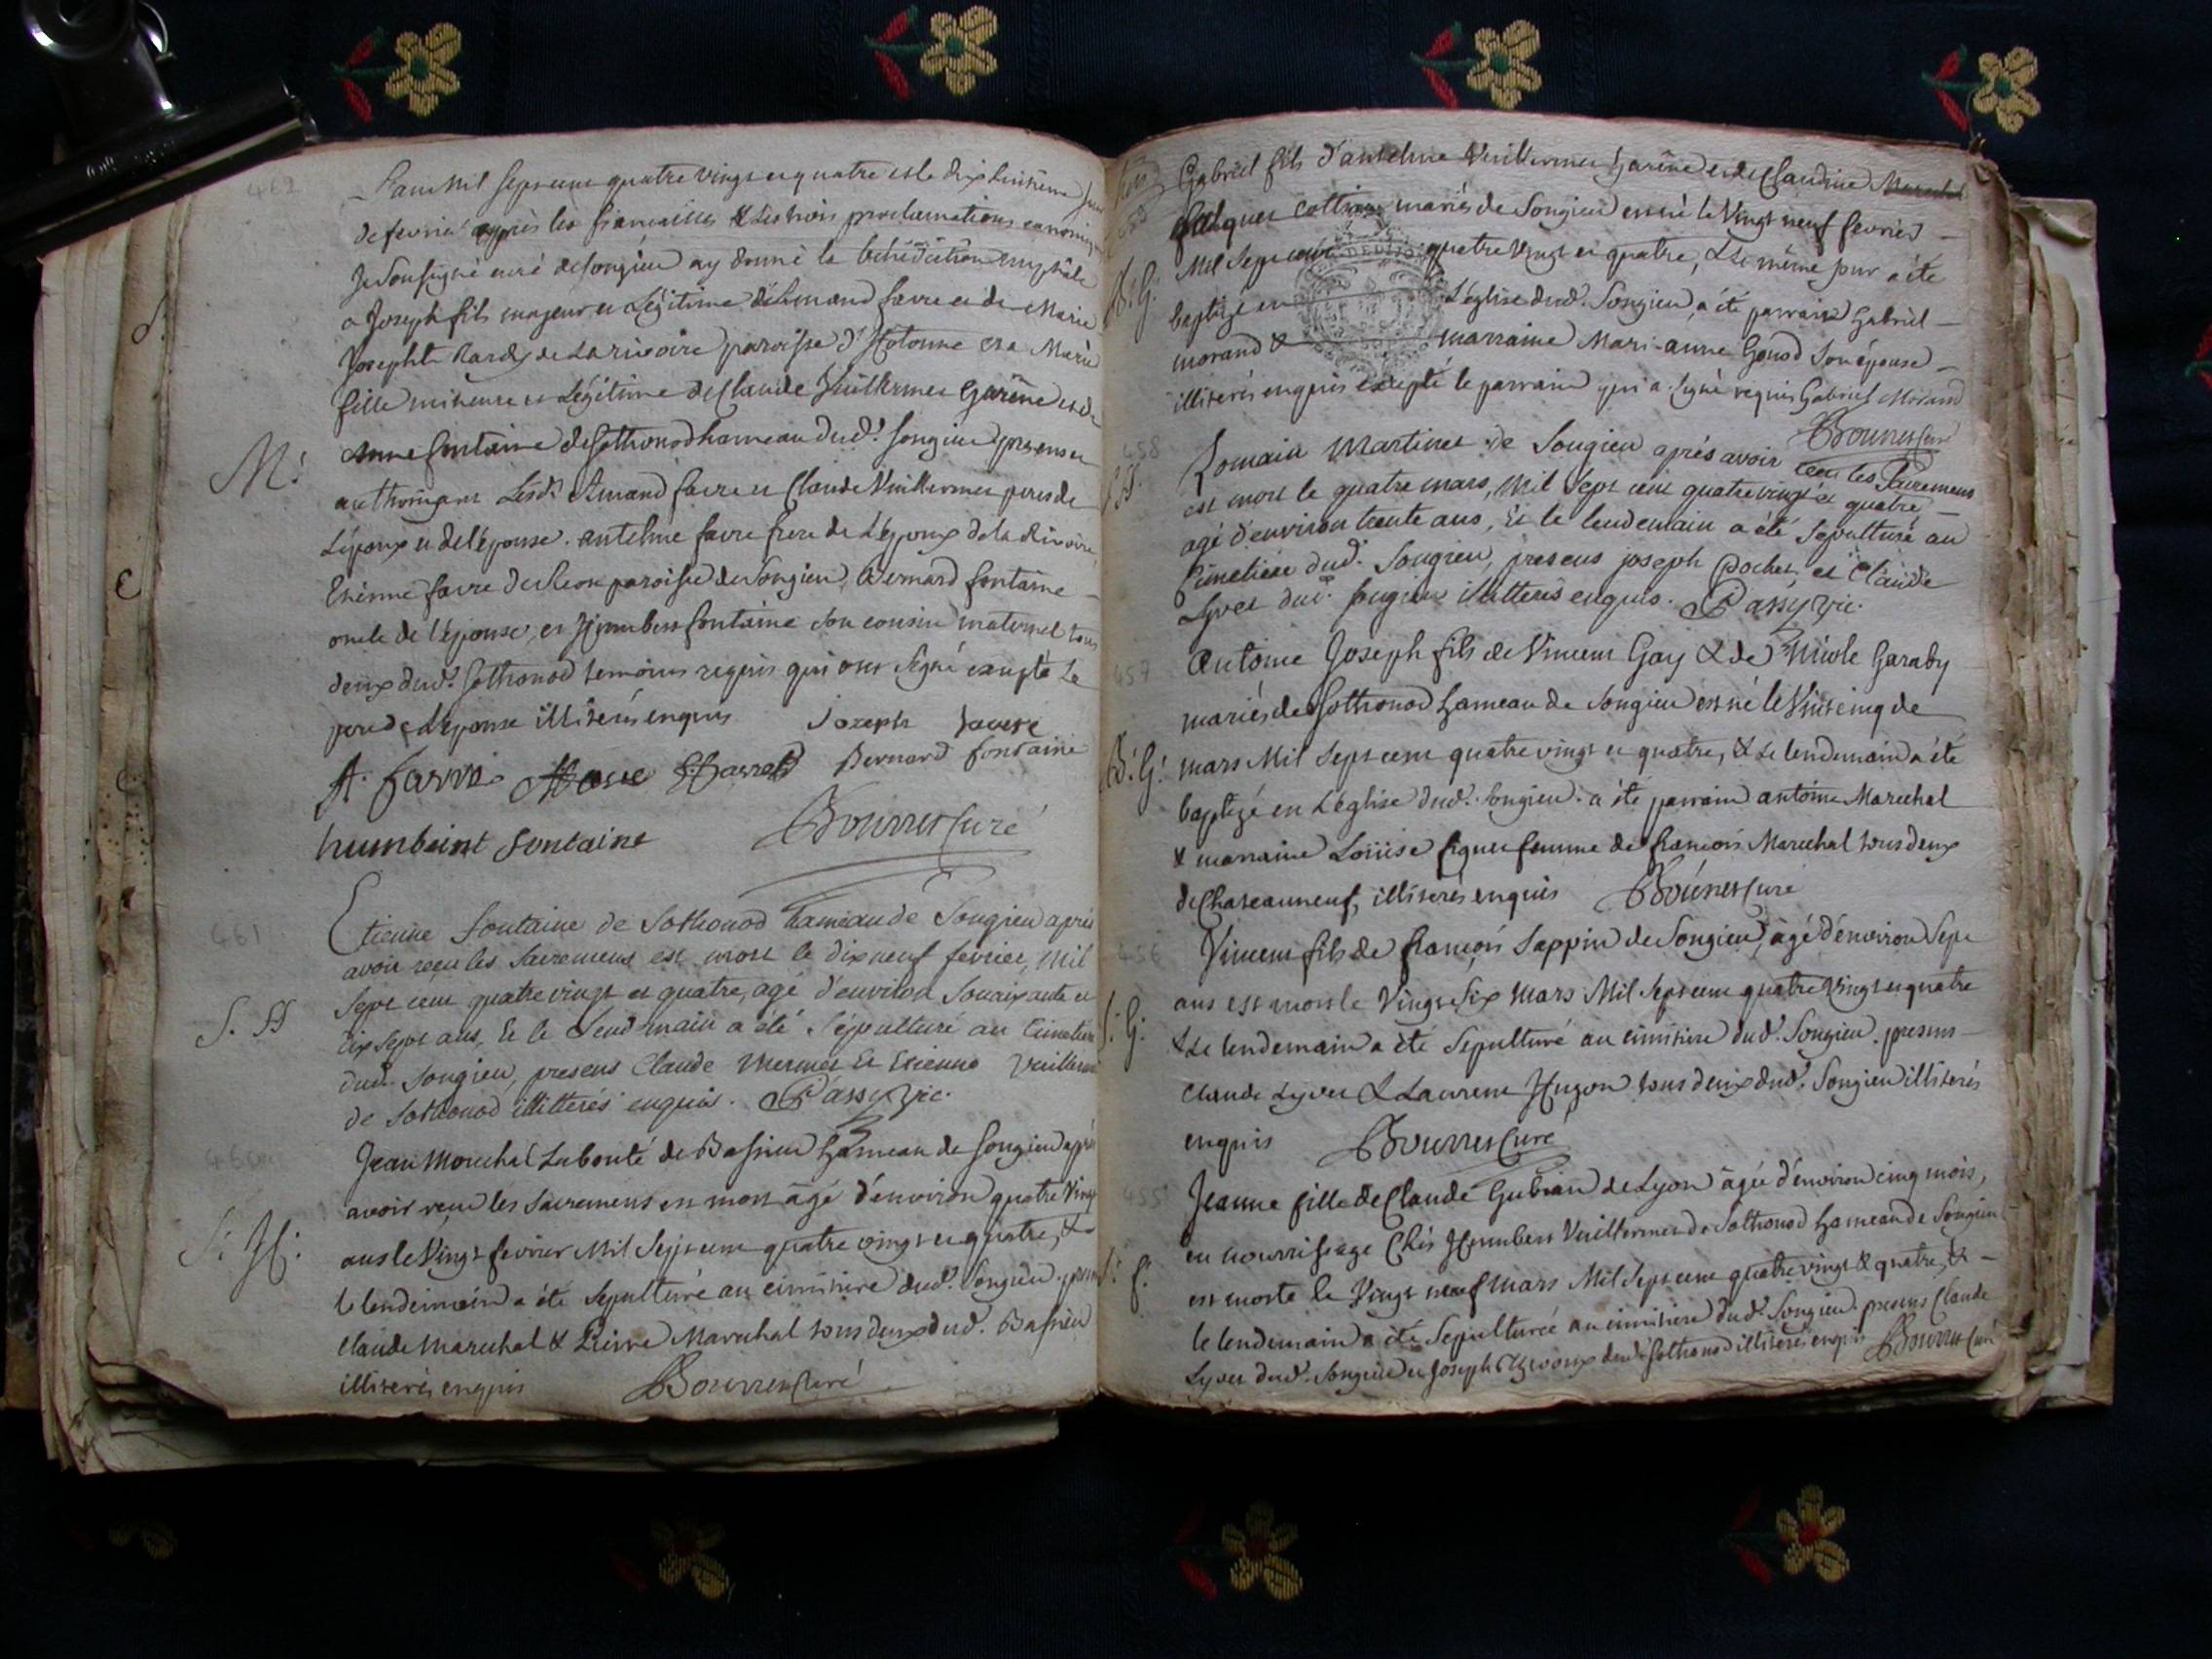 462
L'an Mil Sept cent quatre vingt et quatre et le dix huitieme jour
de fevrier après les fiancailles & les trois proclamations canoniques
Je Soussigné curé de Songieu ay donné la bénédiction nuptiale
a Joseph fils majeur et Légitime d'Amand favre et de Marie
Josephte de La rivoire paroisse d'hotonne et a Marie
fille mineure et Légitime de Claude Vuillermet Garêne et de
Anne fontaine de Sothonod hameau dud.t Songieu presens et
authorisans Lesd.ts Amand favre et Claude Vuillermet peres de
L'époux et de l'épouse. antelme favre frere de L'époux de la Rivoire,
Etienne favre de paroisse de Songieu, Bernard fontaine
oncle de l'épouse, et Humbert fontaine son cousin maternel tous
deux dud.t Sothonod temoins requis qui ont signé excepté Le
pere de L'épouse illiterés enquis Joseph favere
M:
A. favre Bernard fontaine
humbeint fontaine Bourret Curé
461
Etienne fontaine de Sothonod hameau de Songieu après
avoir reçu les Sacremens est mort le dix neuf fevrier, mil
Sept cent quatre vingt et quatre, agé d'environ Soixante et
S. H
dix Sept ans, Et le Lendemain a été Sépulturé au Cimetiere
dud. Songieu, presens Claude Mermet Et Etienne Vuillermet
de Sothonod illitterés enquis. Passy vic.
460
Jean Marechal Labonté de Bassieu hameau de Songieu après
avoir reçu les Sacremens est mort âgé d'environ quatre Vingt
S: H:
ans le Vingt fevrier Mil Sept cent quatre vingt et quatre, &
le lendemain a été Sepulturé au cimitiere dud.t Songieu. presens
Claude Marechal & Pierre Marechal tous deux dud. Bassieu
illiterés enquis Bourret Curé
Gabriel fils d'antelme Vuillermet Garêne et de Claudine
Cottin mariés de Songieu est né le Vingt neuf fevrier
Mil Sept cent quatre Vingt et quatre, & le même jour a été
B: G:
baptizé en L'église dud.t Songieu, a été parrain Gabriel
morand & marraine Mari-anne Gonod Son épouse
illiterés enquis excepté le parrain qui a Signé requis Gabriel Morand
Bourret Curé
458
Romain Martinet de Songieu après avoir reçu les Sacremens
S. H.
est mort le quatre mars, Mil Sept cent quatre vingt et quatre
agé d'environ trente ans, Et le lendemain a été Sépulturé au
Cimetiere dud. Songieu, presens joseph Pochet, et Claude
Lyvet dud. Songieu illitterés enquis. Passy vic.
457
Antoine Joseph fils de Vincent Gay & de Nicole Garaby
mariés de Sothonod hameau de Songieu est né le Vint cinq de
B: G:
mars Mil Sept cent quatre vingt et quatre, & Le lendemain a été
baptizé en L'église dud.t Songieu. a été parrain antoine Marechal
& marraine Loüise femme de françois Marechal tous deux
de Chateauneuf, illiterés enquis Bourret Curé
456
Vincent fils de françois Sappin de Songieu, agé d'environ Sept
ans est mort le Vingt Six Mars Mil Sept cent quatre Vingt et quatre
S: G:
& Le lendemain a été Sépulturé au cimitiere dud.t Songieu. presens
Claude Lyvet & Laurent Hugon tous deux dud.t Songieu illiterés
enquis Bourret Curé
455
Jeanne fille de Claude Gubian de Lyon âgée d'environ cinq mois,
en nourrissage Chés Humbert Vuillermet de Sothonod hameau de Songieu
S: f:
est morte le Vingt neuf Mars Mil Sept cent quatre vingt & quatre, &
le lendemain a été Sepulturée au cimitiere dud.t Songieu. presens Claude
Lyvet dud.t Songieu et Joseph dud.t Sothonod illiterés enquis Bourret Curé